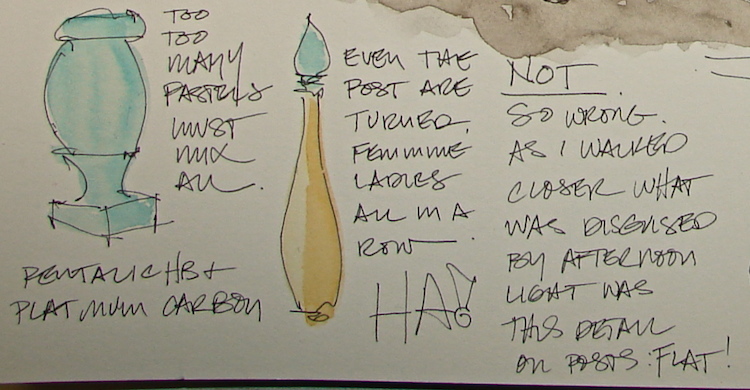 TOO
TOO
MANY
PASTELS
MUST
MIX
ALL.
PENTALIC HB +
PLATINUM CARBON
EVEN THE
POST ARE
TURNED.
FEMMINE
LADIES
ALL IN A
ROW
HA!
NOT.
SO WRONG.
AS I WALKED
CLOSER WHAT
WAS DISGUISED
BY AFTERNOON
LIGHT WAS
THIS DETAIL
ON POSTS: FLAT!